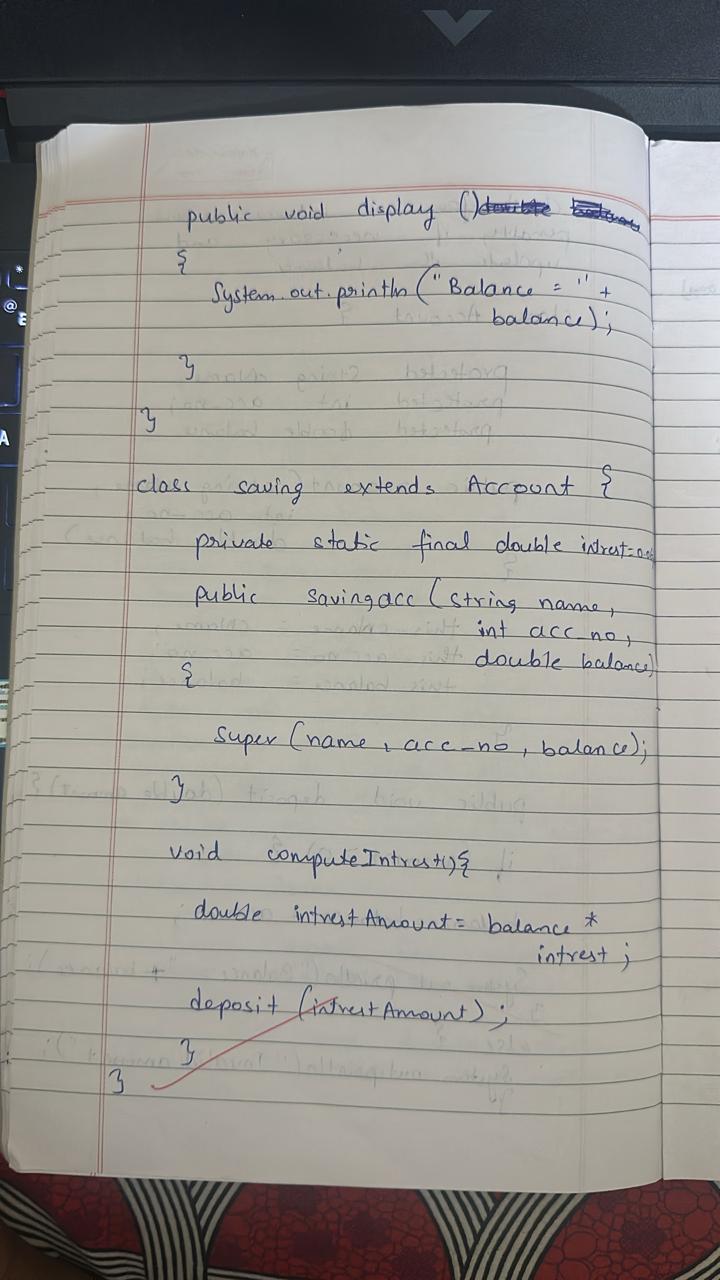 public void display ()
{
System.out.println ("Balance = " +
balance);
}
}
class saving extends Account {
private static final double intrest=
public savingacc (string name,
int acc_no,
double balance)
{
super (name, acc_no, balance);
}
void computeIntrest(){
double intrestAmount = balance *
intrest ;
deposit (intrestAmount) ;
}
}